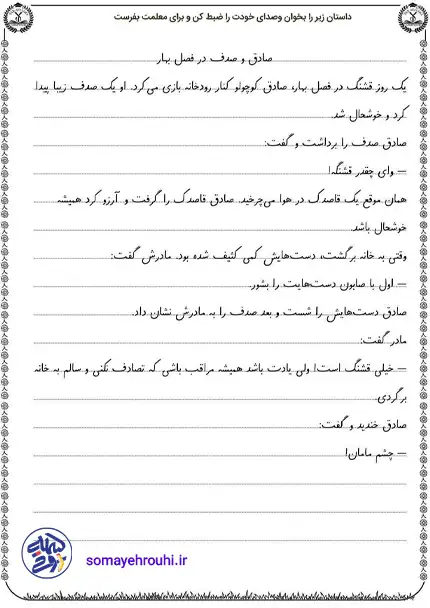 داستان زیر را بخوان وصدای خودت را ضبط کن و برای معلمت بفرست
صادق و صدف در فصل بهار
یک روز قشنگ در فصل بهار، صادق کوچولو کنار رودخانه بازی می‌کرد. او یک صدف زیبا پیدا
کرد و خوشحال شد.
صادق صدف را برداشت و گفت:
– وای چقدر قشنگه!
همان موقع یک قاصدک در هوا می‌چرخید. صادق قاصدک را گرفت و آرزو کرد همیشه
خوشحال باشد.
وقتی به خانه برگشت، دست‌هایش کمی کثیف شده بود. مادرش گفت:
– اول با صابون دست‌هایت را بشور.
صادق دست‌هایش را شست و بعد صدف را به مادرش نشان داد.
مادر گفت:
– خیلی قشنگ است! ولی یادت باشد همیشه مراقب باشی که تصادف نکنی و سالم به خانه
برگردی.
صادق خندید و گفت:
– چشم مامان!
somayehrouhi.ir